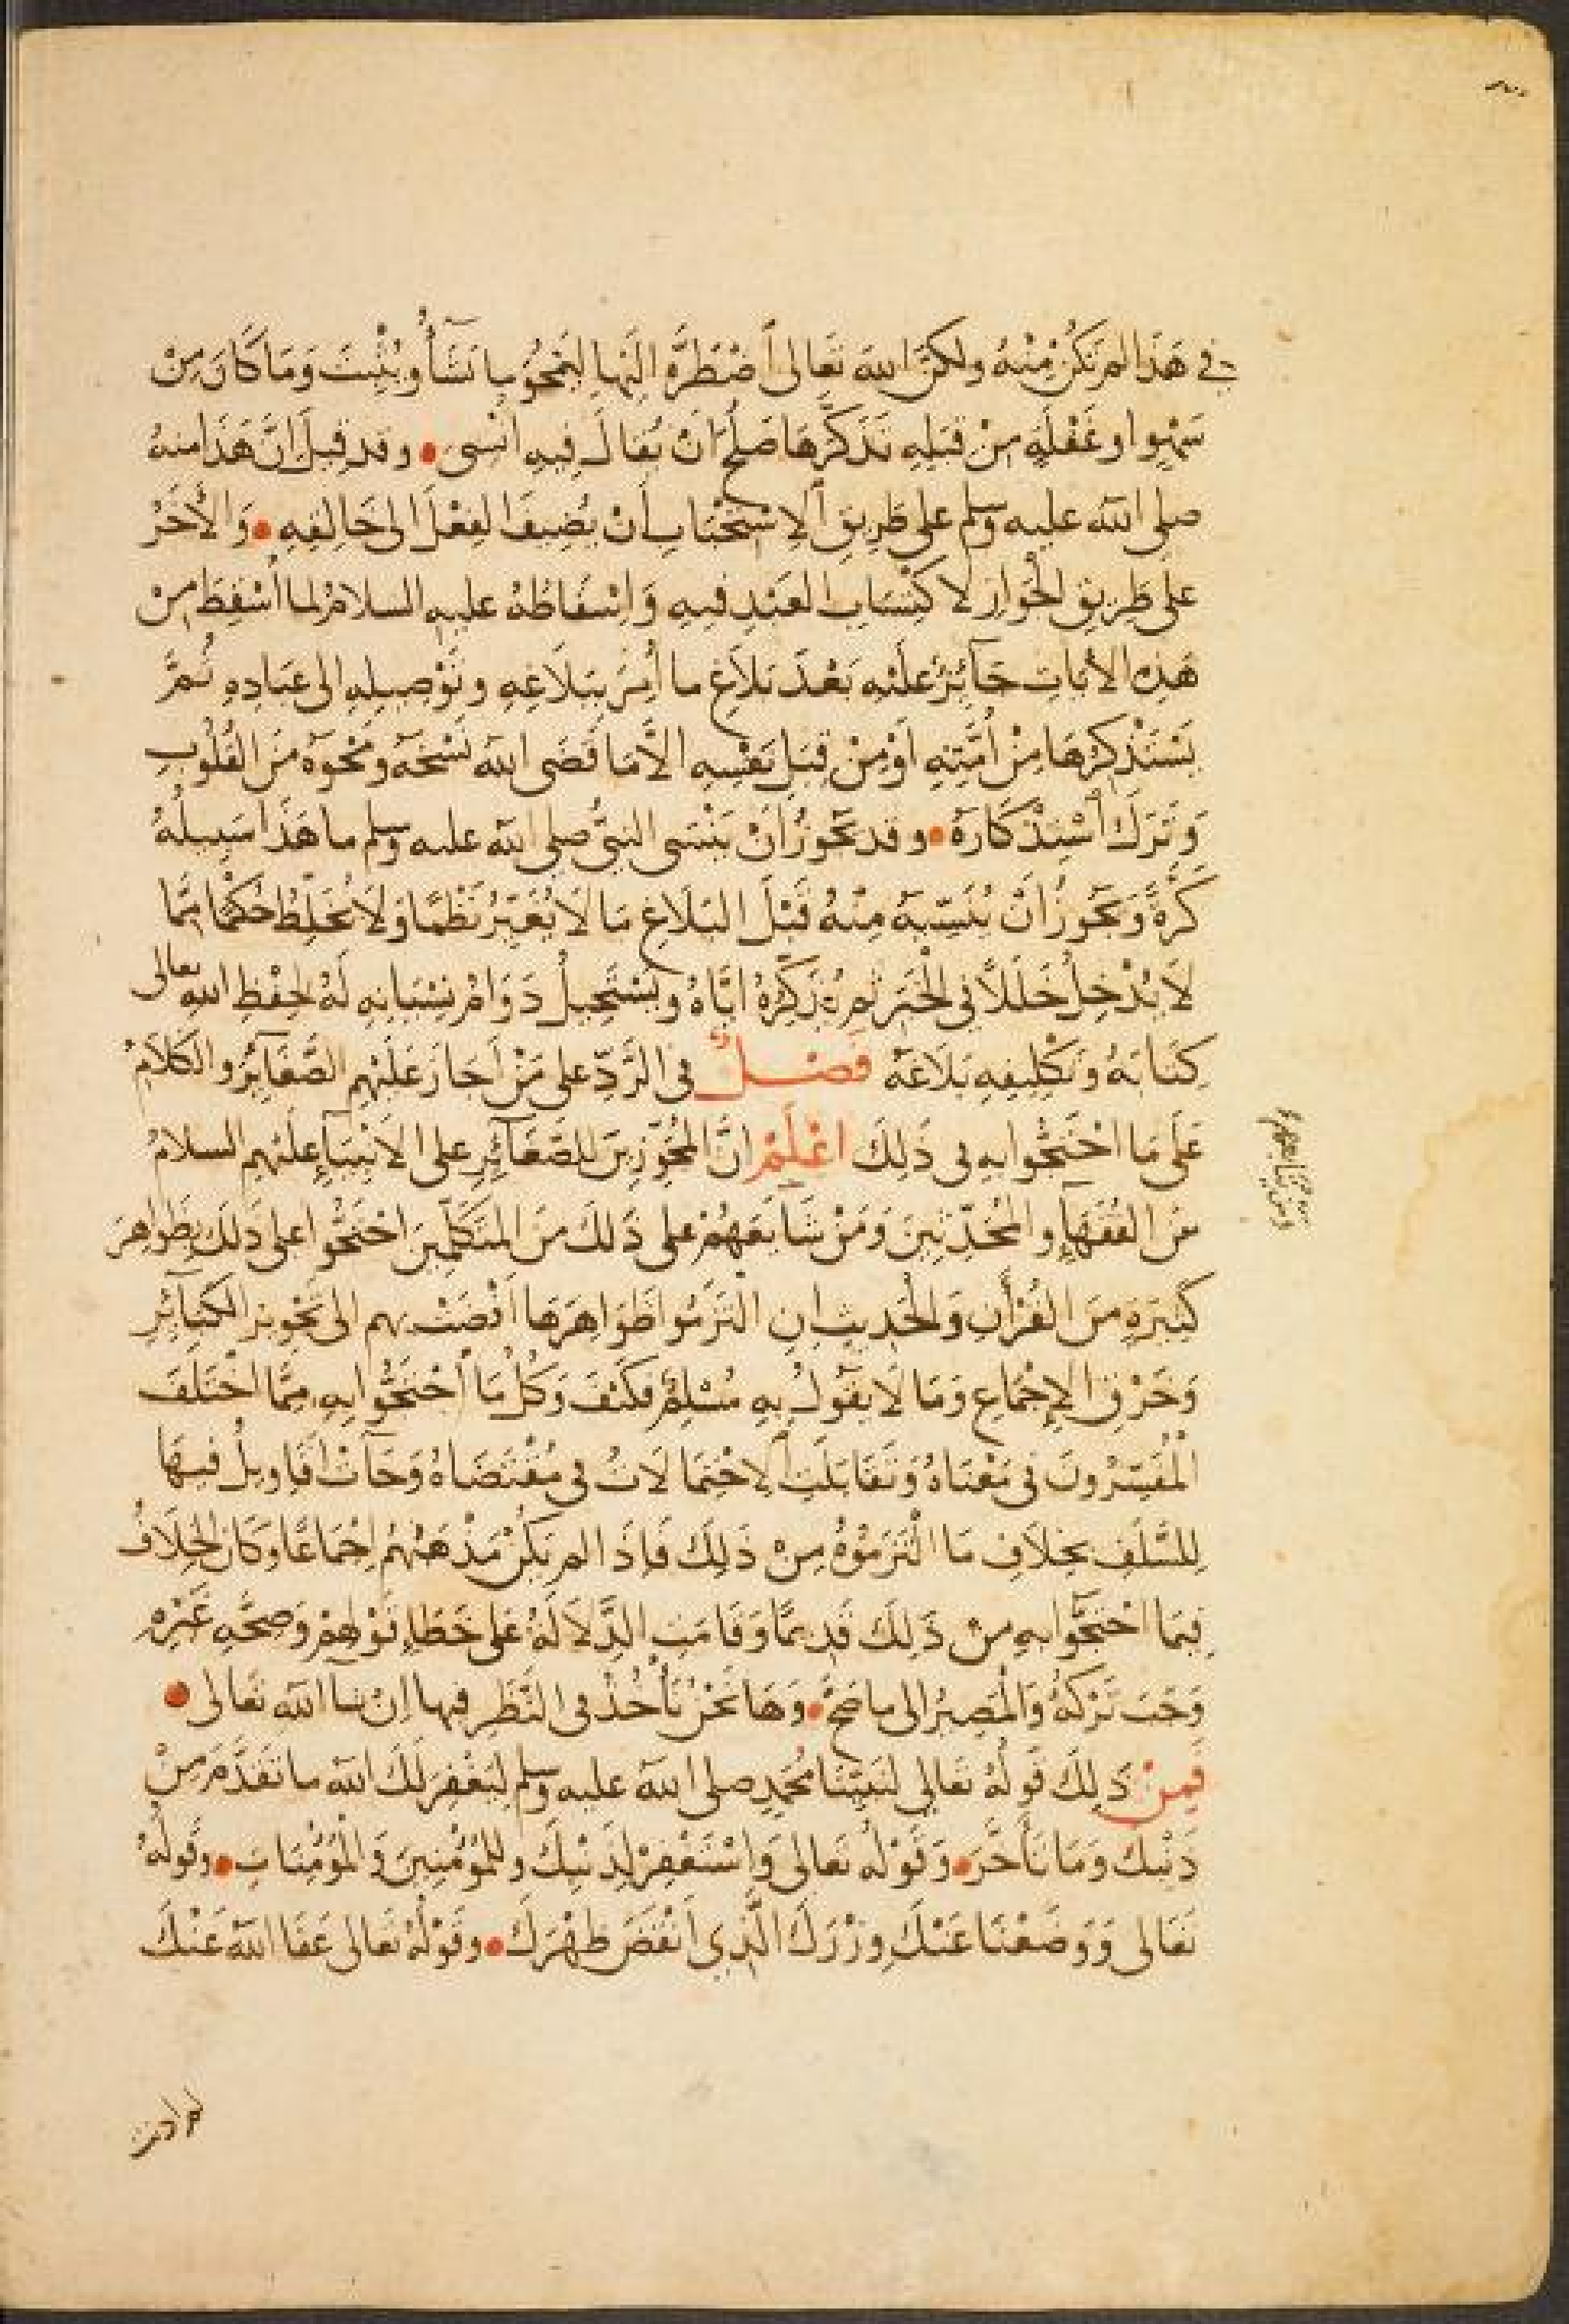 في هَذَا لم تَكُنْ مِنْهُ ولكنَّ اللهَ تَعالى اَضْطَرَّهُ اِلَيْهَا لِيَمْحُوَ ما نَشَأُ ويُثْبِتَ وَمَا كَانَ مِنْ
سَهْوٍ او غَفْلَةٍ مِنْ قِبَلِهِ تَذَكَّرَهَا صَلُحَ اَنْ يُقَالَ فِيهِ اُنْسى • وقد قِيلَ اِنَّ هَذَا منهُ
صلى الله عليه وسلم على طَرِيقِ الاِسْتِحْبَابِ أَنْ يُضِيفَ الفِعْلَ الى خَالِقِهِ • وَالأَخَرُ
على طَرِيقِ الْجَوَازِ لاكتِسَابِ العَبْدِ فيهِ وَاِسْقَاطُهُ عليهِ السلامُ لما اُسْقِطَ مِنْ
هَذِهِ الأيَاتِ جَآئِزٌ عَلَيْهِ بَعْدَ بَلَاغِ ما اُمِرَ بِبَلَاغِهِ وتَوْصِيلِهِ الى عِبَادِهِ ثُمَّ
يَسْتَذْكِرُهَا مِنْ اُمَّتِهِ اَوْ مِنْ قِبَلِ نَفْسِهِ الاَّ مَا قَضَى اللهُ نَسْخَهُ ومَحْوَهُ مِنَ القُلُوبِ
وَتَرْكَ اسْتِذْكَارِهِ • وقد يَجُوزُ اَنْ يَنْسَى النبيُّ صلى الله عليه وسلم ما هَذَا سَبِيلُهُ
كَرَّةً وَيَجُوزُ اَنْ يُنَسِّيَهُ مِنْهُ قَبْلَ البَلَاغِ مَا لَا يُغَيِّرُ نَظْمًا وَلَا يُخَلِّطُ حُكْمًا مِمَّا
لَا يُدْخِلُ خَلَلًا في الْخَبَرِ ثم يُذَكِّرُهُ اِيَّاهُ ويَسْتَحِيلُ دَوَامُ نِسْيَانِهِ لَهُ لِحِفْظِ اللهِ تعالى
كِتَابَهُ وَتَكْلِيفِهِ بَلَاغَهُ فَصْلٌ في الرَّدِّ على مَنْ اَجَازَ عَلَيْهِم الصَّغَآئِرَ والكَلَامُ
عَلَى مَا احْتَجُّوا به في ذَلِكَ اعْلَمْ انَّ المُجَوِّزِينَ للصَّغَآئِرِ على الاَنْبِيَاءِ عليهم السلامُ
مِنَ الفُقَهَاءِ والمُحَدِّثِينَ وَمَنْ شَايَعَهُمْ على ذَلِكَ مِنَ المُتَكَلِّمِينَ احْتَجُّوا على ذَلِكَ بِظَوَاهِرَ
كَثِيرَةٍ مِنَ القُرْأَنِ وَالْحَدِيثِ اِنِ الْتَزَمُوا ظَوَاهِرَهَا اَفْضَتْ بِهِم الى تَجْوِيزِ الكَبَآئِرِ
وَخَرْقِ الاِجْمَاعِ وَمَا لَا يَقُولُ بِهِ مُسْلِمٌ فكَيْفَ وَكُلُّ مَا احْتَجُّوا بِهِ مِمَّا اخْتَلَفَ
الْمُفَسِّرُونَ في مَعْنَاهُ وَتَقَابَلَتِ الاِحْتِمَالَاتُ في مُقْتَضَاهُ وَجَآتْ اَقَاوِيلُ فيهَا
لِلسَّلَفِ بخِلَافِ مَا الْتَزَمُوهُ مِنْ ذَلِكَ فَاِذَا لم يَكُنْ مَذْهَبُهُم اِجْمَاعًا وَكَانَ الْخِلَافُ
فِيمَا احْتَجُّوا بهِ مِنْ ذَلِكَ قَدِيمًا وَقَامَتِ الدَّلَالَةُ عَلى خَطَاءِ قَوْلِهِمْ وَصِحَّةِ غَيْرِهِ
وَجَبَ تَرْكُهُ وَالْمَصِيرُ الى ما صَحَّ • وَهَا نَحْنُ نَأْخُذُ في النَّظَرِ فيها اِنْ شا اللهُ تَعَالى •
فَمِنْ ذَلِكَ قَولُهُ تعالى لنَبِيِّنَا مُحَمَّدٍ صلى الله عليه وسلم لِيَغْفِرَ لَكَ اللهُ ما تَقَدَّمَ مِنْ
ذَنْبِكَ وَمَا تَأَخَّرَ • وَقَوْلُهُ تعالى وَاسْتَغْفِرْ لِذَنْبِكَ وللمُؤْمِنِينَ وَالْمُؤْمِنَاتِ • وقَولُهُ
تَعَالى وَوَضَعْنَا عَنْكَ وِزْرَكَ الَّذِي اَنْقَضَ ظَهْرَكَ • وقَوْلُهُ تعَالى عَفَا اللهُ عَنْكَ
لم اذنت